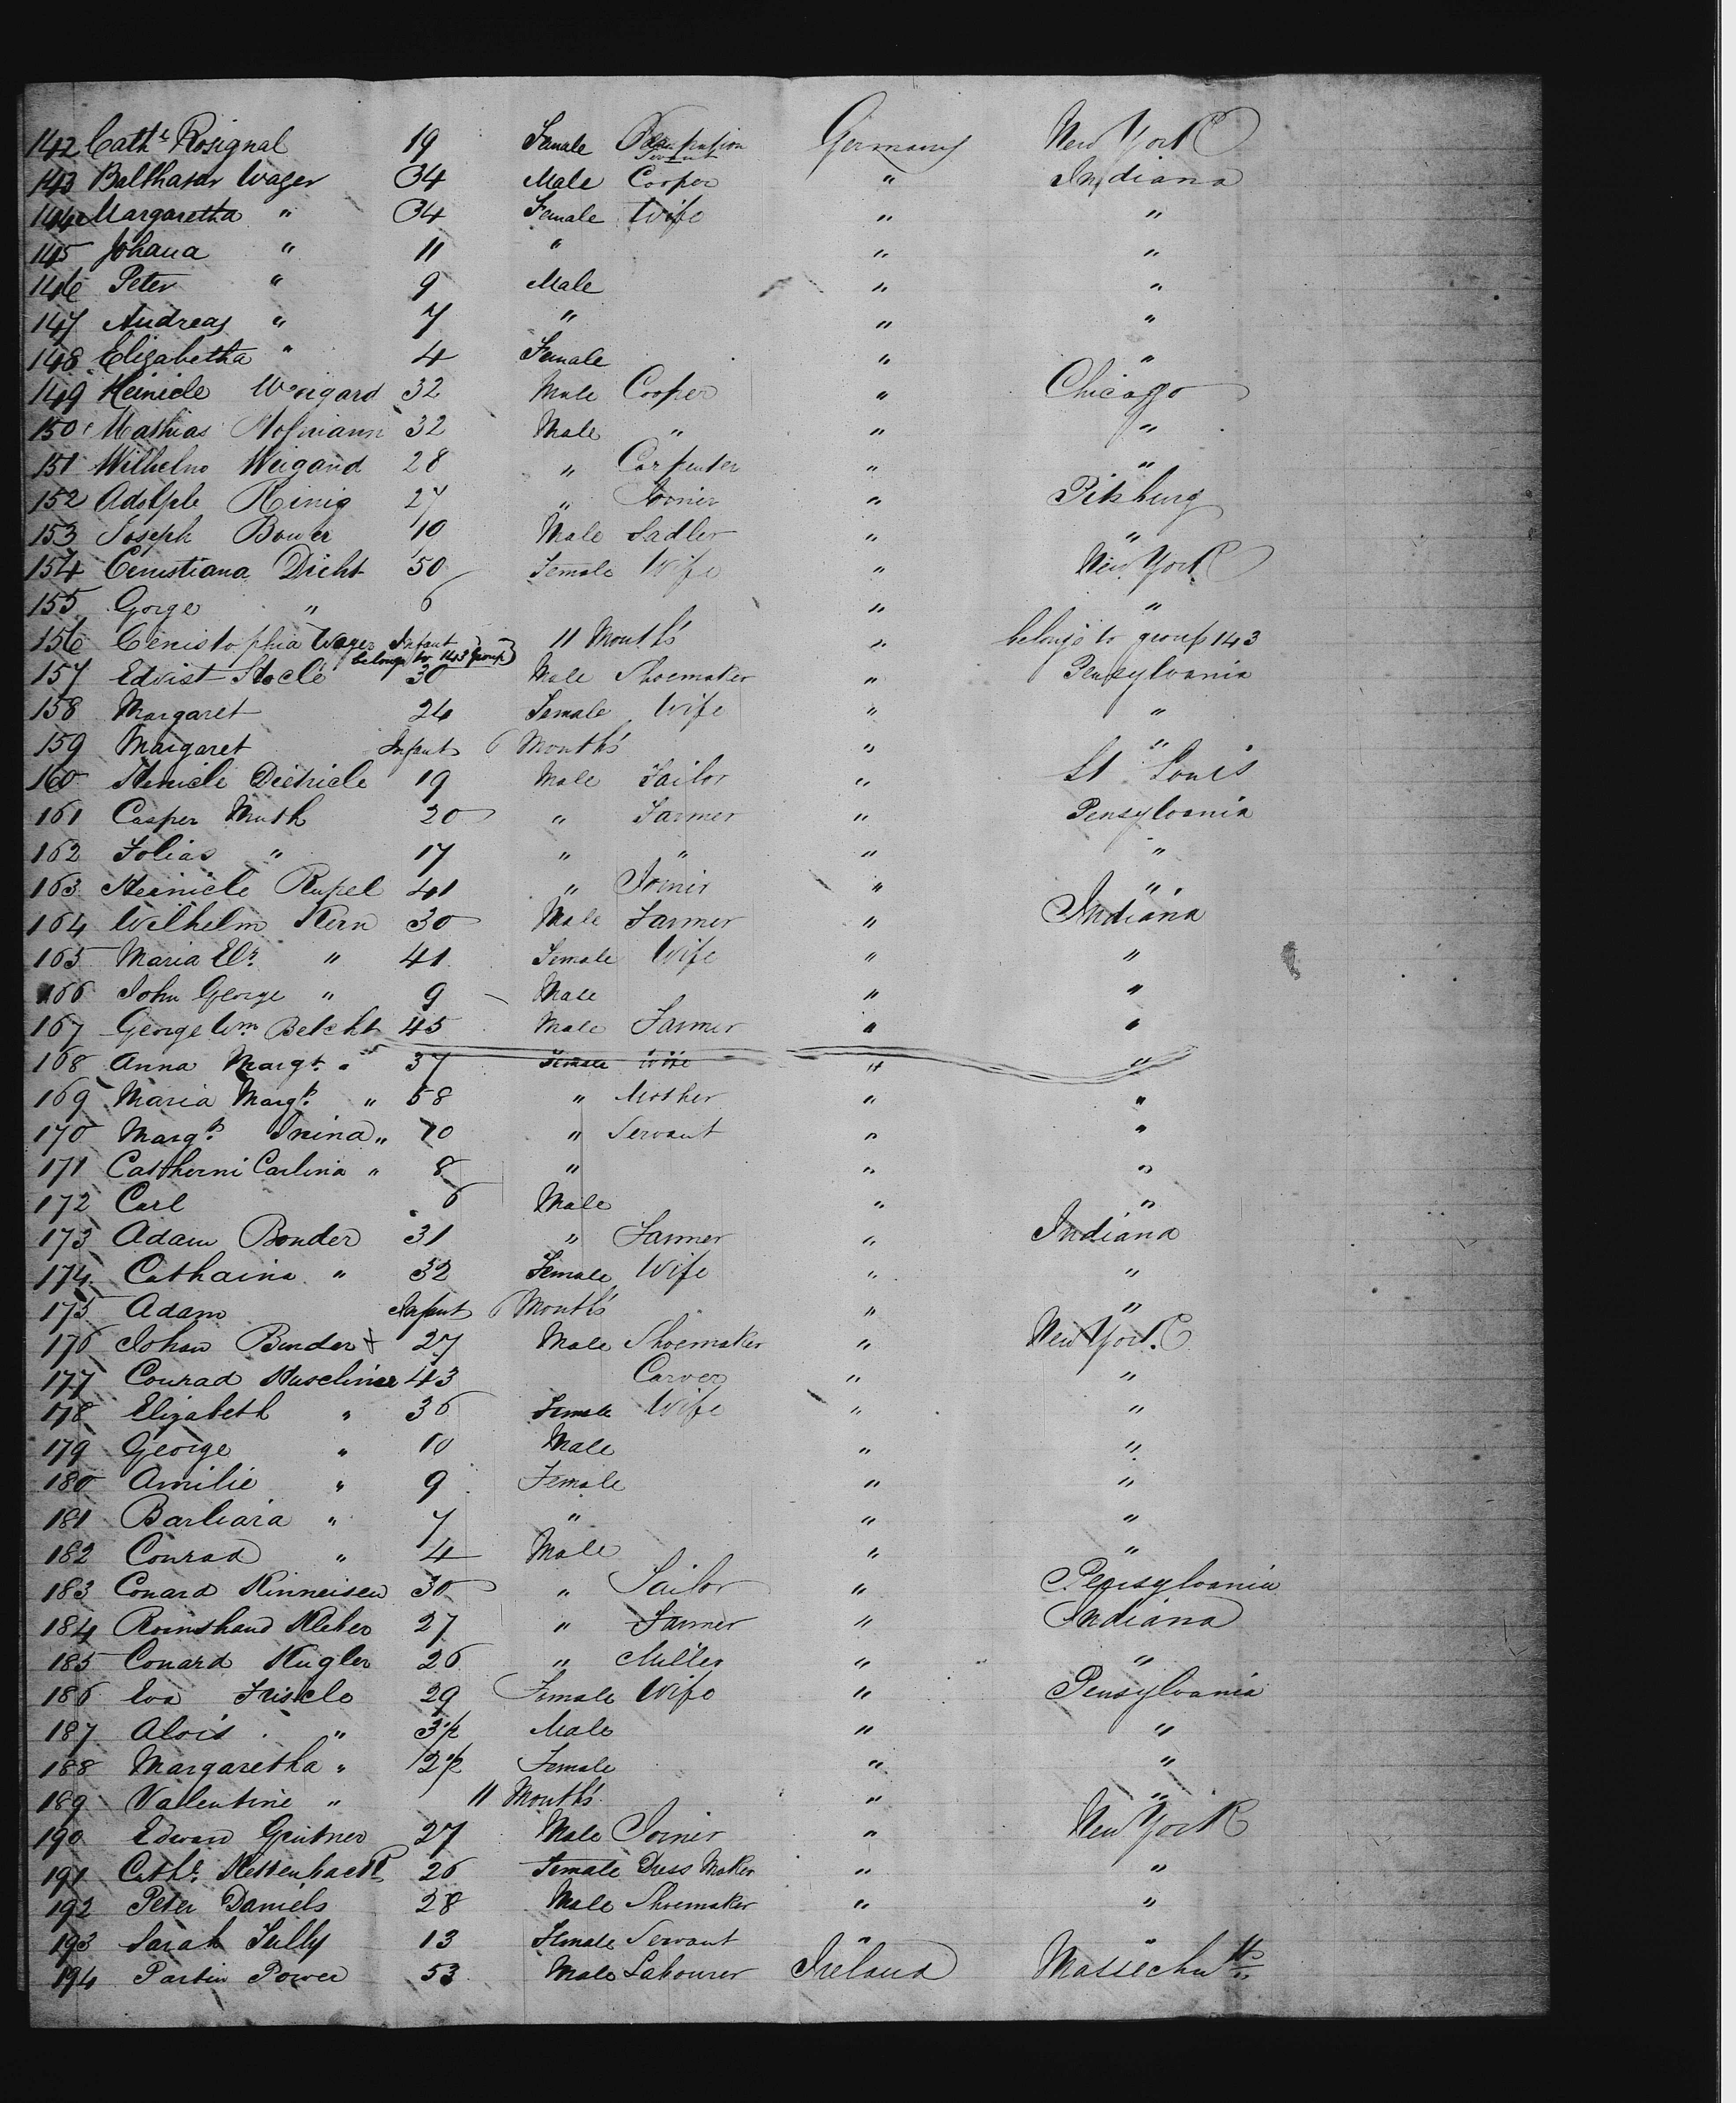 142 Cathe Rosignal 19 Female Occupation Servant Germany New York
143 Balthasar Wager 34 Male Cooper " Indiana
144 Margaretha " 34 Female Wife " "
145 Johana " 11 " " "
146 Peter " 9 Male " "
147 Andreas " 7 " " "
148 Elizabetha " 4 Female " "
149 Heinicle Weigard 32 Male Cooper " Chicago
150 Mathias Hofmann 32 Male " " "
151 Wilhelm Weigand 28 " Carpenter " "
152 Adolple Rinig 27 " Joiner " Pitsburg
153 Joseph Bower 10 Male Sadler " "
154 Cenistiana Dicht 50 Female Wife " New York
155 Gorge " 6 " "
156 Cenistophia Wager Infant 11 Month's " belongs to group 143
belongs to 143 group
157 Edvist Stocle 30 Male Shoemaker " Pensylvania
158 Margaret 24 Female Wife " "
159 Margaret Infant 6 Month's " "
160 Henicle Dietricle 19 Male Tailor " St Louis
161 Casper Muth 20 " Farmer " Pensylvania
162 Tolias " 17 " " " "
163 Heinicle Rupel 41 " Joinir " "
164 Wilhelm Kern 30 Male Farmer " Indiana
165 Maria " 41 Female Wife " "
166 John George " 9 Male " "
167 George Wm Betcht 45 Male Farmer " "
168 Anna Margt " 37 Female Wife " "
169 Maria Margt " 58 " Mother " "
170 Margt Inina " 10 " Servant " "
171 Catherni Carlina " 8 " " "
172 Carl 6 Male " "
173 Adam Bonder 31 " Farmer " Indiana
174 Cathaina " 32 Female Wife " "
175 Adam Infant 6 Month's " "
176 Johan Bender + 27 Male Shoemaker " New York
177 Conrad 43 Carver " "
178 Elizabeth " 36 Female Wife " "
179 George " 10 Male " "
180 Amilie " 9 Female " "
181 Barbara " 7 " " "
182 Conrad " 4 Male " "
183 Conard Kinneisen 30 " Tailor " Pensylvania
184 Kleber 27 " Farmer " Indiana
185 Conard Kugler 26 " Miller " "
186 Eva Friscle 29 Female Wife " Pensylvania
187 Alois " 3 1/2 Male " "
188 Margaretha " 2 1/2 Female " "
189 Valentine " 11 Month's " "
190 Edward Geutner 27 Male Joiner " New York
191 Cathe 26 Female Dress Maker " "
192 Peter Daniels 28 Male Shoemaker " "
193 Sarah Tully 13 Female Servant " "
194 Power 53 Male Labourer Ireland Massechutts